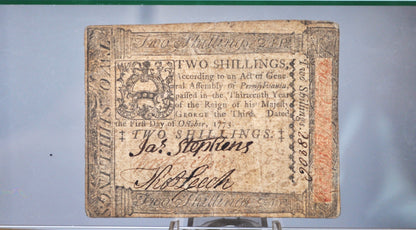 Two Shillings
TWO SHILLINGS.
According to an Act of Gene
ral Assembly of Pennsylvania,
passed in the Thirteenth Year
of the Reign of his Majesty
GEORGE the Third. Dated
the First Day of October, 1773.
‡ TWO SHILLINGS. ‡
Jas. Stephens
Thos Leech
Two Shillings
TWO SHILLING
Two Shillings